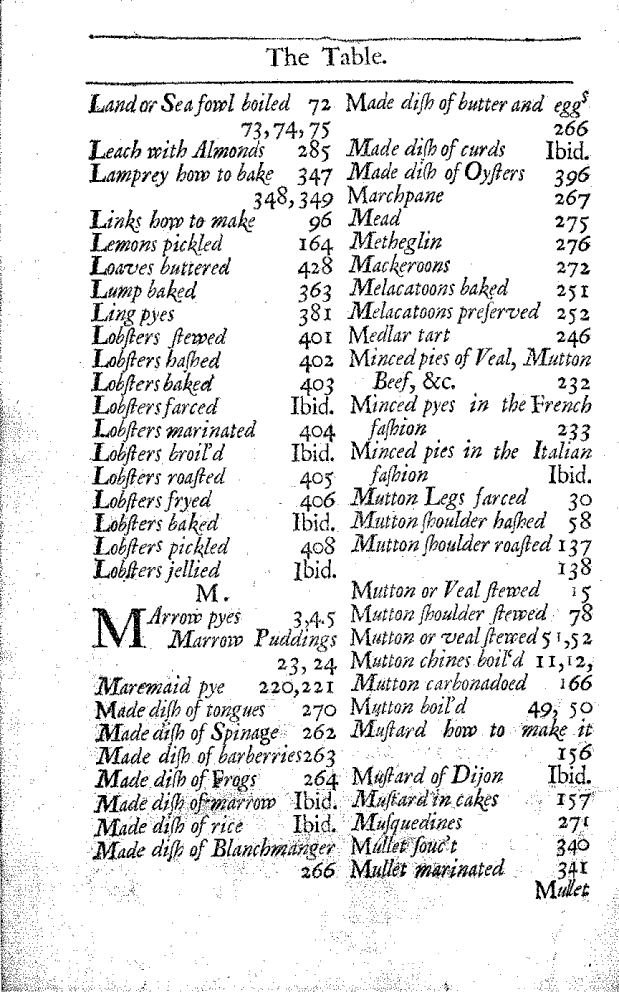 The Table.
Land or Sea fowl boiled 72
73, 74, 75
Leach with Almonds 285
Lamprey how to bake 347
348, 349
Links how to make 96
Lemons pickled 164
Loaves buttered 428
Lump baked 363
Ling pyes 381
Lobſters ſtewed 401
Lobſters haſhed 402
Lobſters baked 403
Lobſters farced Ibid.
Lobſters marinated 404
Lobſters broil'd Ibid.
Lobſters roaſted 405
Lobſters fryed 406
Lobſters baked Ibid.
Lobſters pickled 408
Lobſters jellied Ibid.
M.
MArrow pyes 3,4.5
Marrow Puddings
23, 24
Maremaid pye 220,221
Made diſh of tongues 270
Made diſh of Spinage 262
Made diſh of barberries 263
Made diſh of Frogs 264
Made diſh of marrow Ibid.
Made diſh of rice Ibid.
Made diſh of Blanchmanger
266
Made diſh of butter and eggs
266
Made diſh of curds Ibid.
Made diſh of Oyſters 396
Marchpane 267
Mead 275
Metheglin 276
Mackeroons 272
Melacatoons baked 251
Melacatoons preſerved 252
Medlar tart 246
Minced pies of Veal, Mutton
Beef, &c. 232
Minced pyes in the French
faſhion 233
Minced pies in the Italian
faſhion Ibid.
Mutton Legs farced 30
Mutton ſhoulder haſhed 58
Mutton ſhoulder roaſted 137
138
Mutton or Veal ſtewed 15
Mutton ſhoulder ſtewed 78
Mutton or veal ſtewed 51,52
Mutton chines boil'd 11,12,
Mutton carbonadoed 166
Mutton boil'd 49, 50
Muſtard how to make it
156
Muſtard of Dijon Ibid.
Muſtard in cakes 157
Muſquedines 271
Mullet ſouc't 340
Mullet marinated 341
Mullet